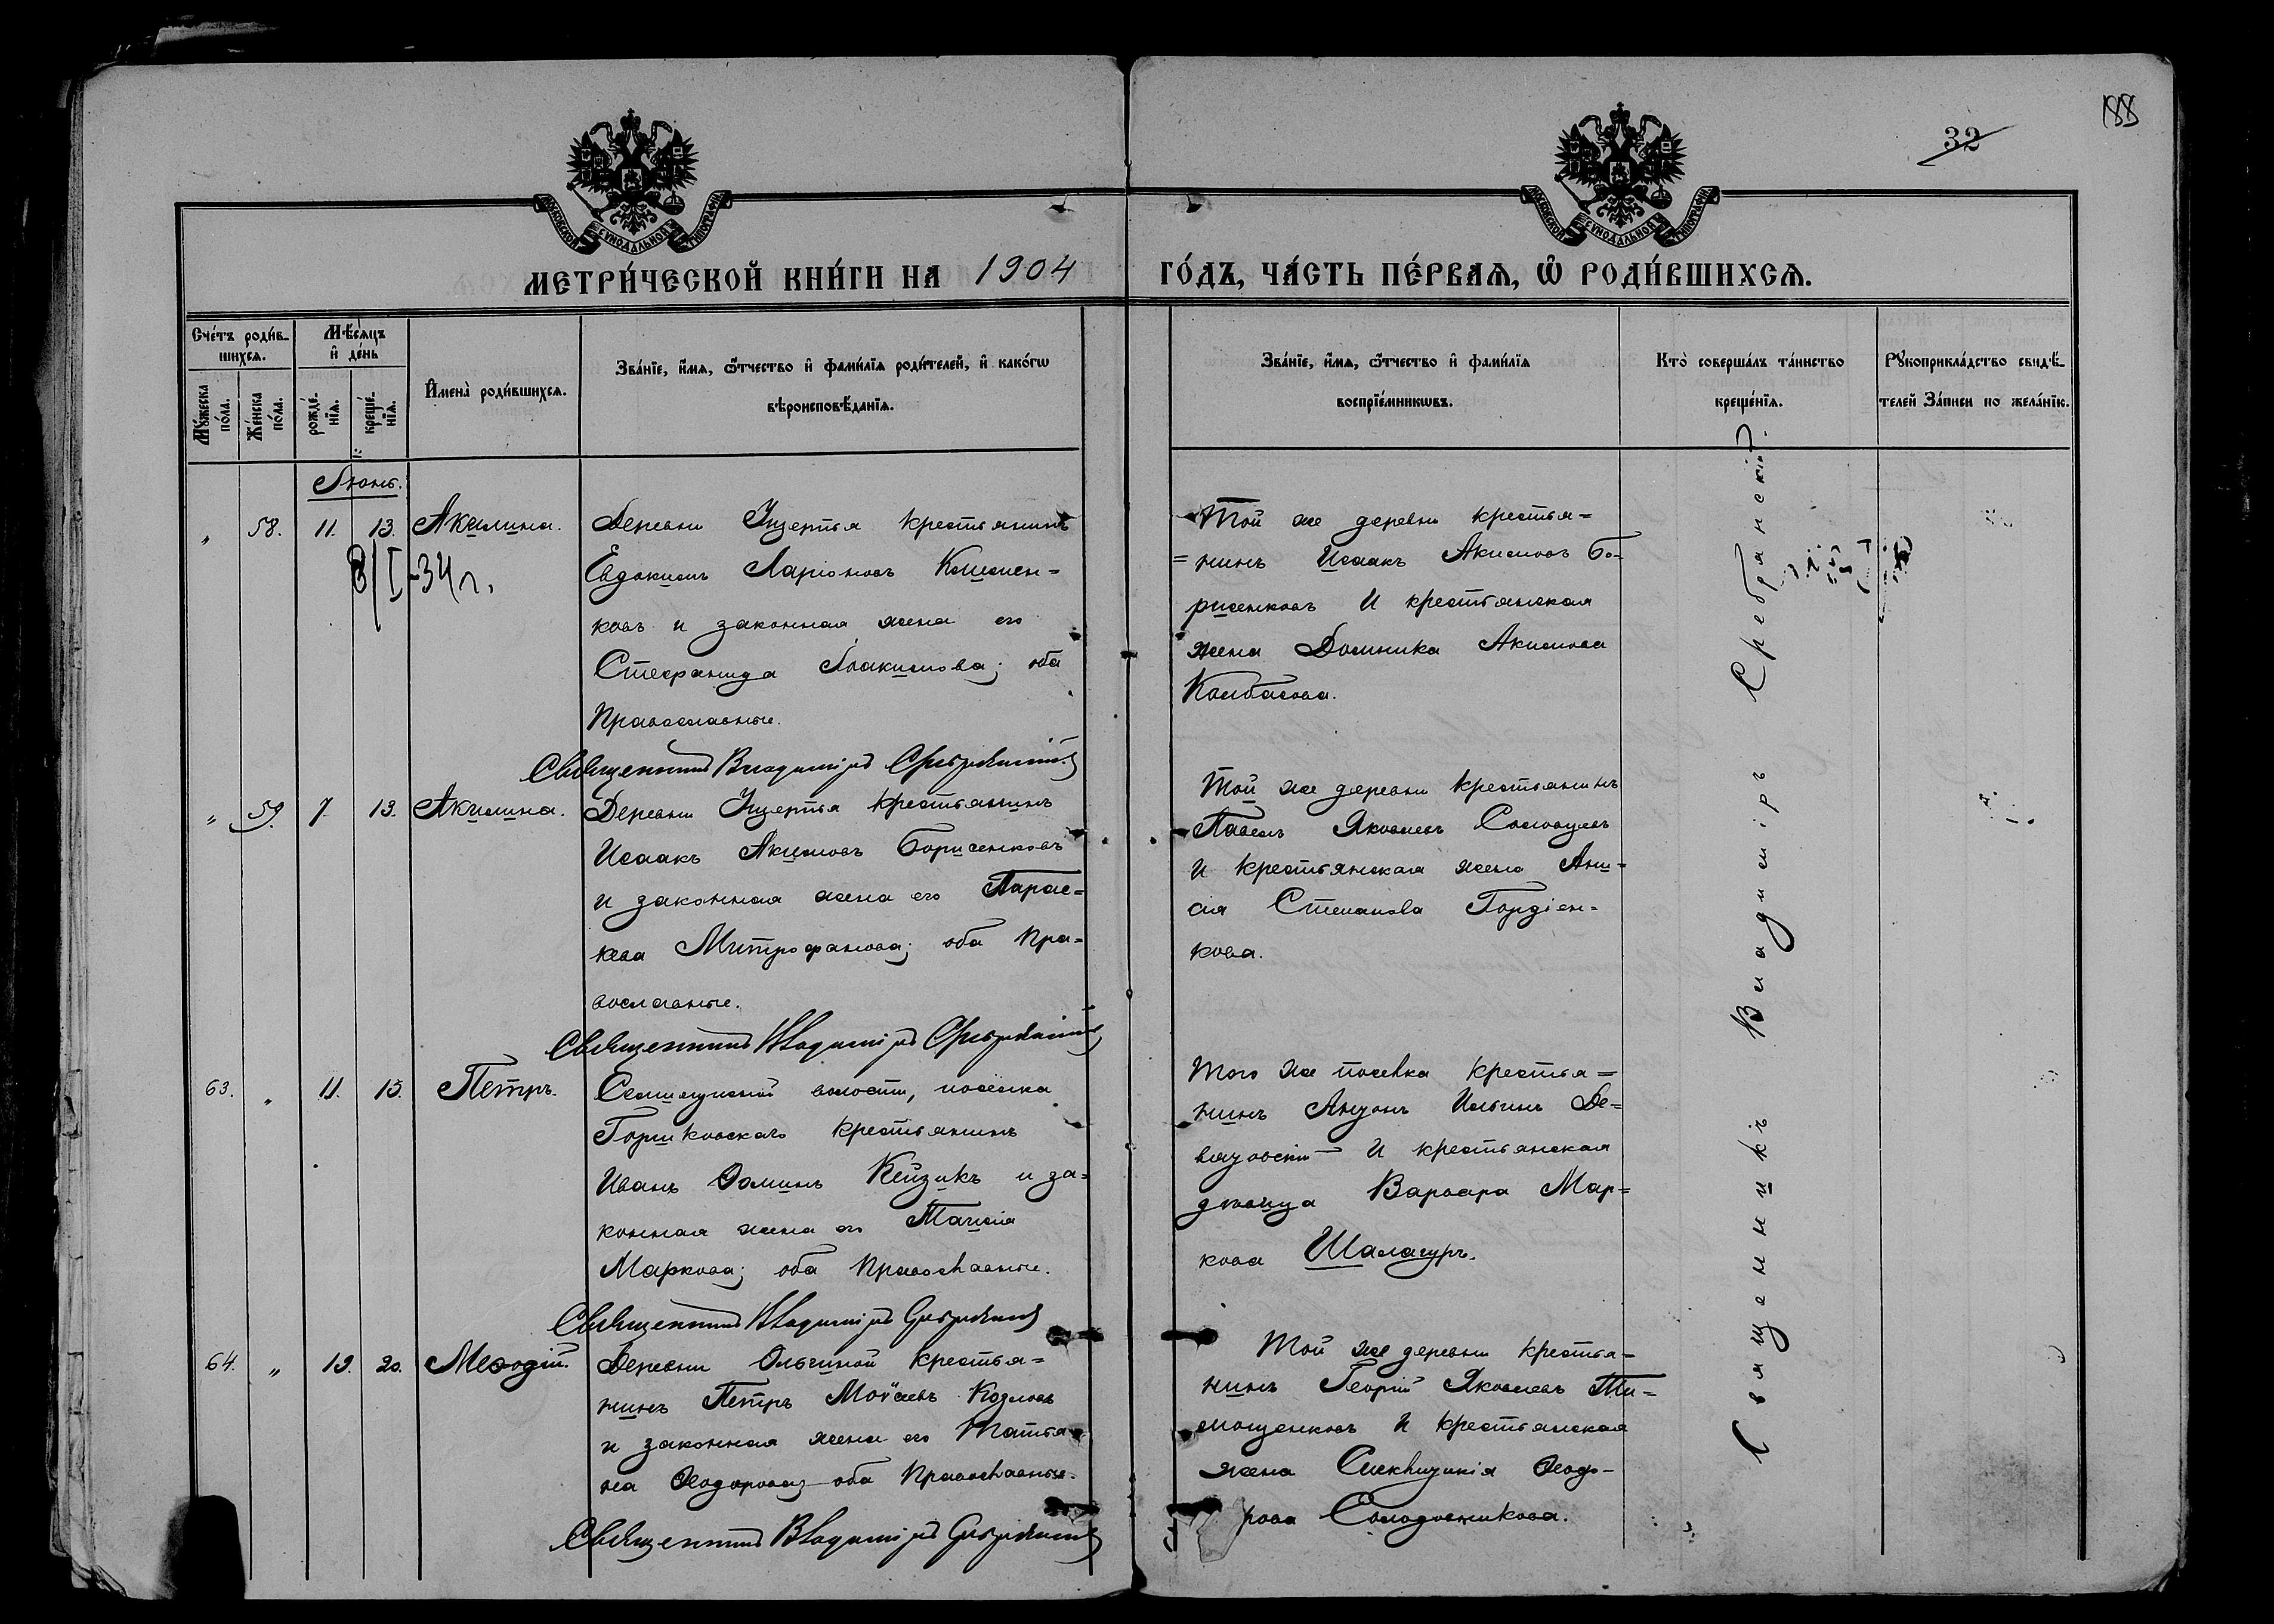 188
32
МОСКОВСКОЙ СѴНОДАЛЬНОЙ ТИПОГРАФІИ.
МОСКОВСКОЙ СѴНОДАЛЬНОЙ ТИПОГРАФІИ.
МЕТРИ́ЧЕСКОЙ КНИ́ГИ НА 1904 ГО́ДЪ, ЧА́СТЬ ПЕ́РВАЯ, Ѽ РОДИ́ВШИХСЯ.
Сче́тъ роди́в-
шихся.
Мꙋ́жеска
по́ла.
Же́нска
по́ла.
Мѣ́сяцъ
и҆ де́нь
рожде́-
нїя.
креще́-
нїя.
И҆мена̀ роди́вшихся.
Зва́нїе, и҆́мя, ѻ҆́тчество и҆ фами́лїя роди́телей, и҆ како́гѡ
вѣроисповѣ́данїя.
Зва́нїе, и҆́мя, ѻ҆́тчество и҆ фами́лїя
воспрїе́мникѡвъ.
Кто̀ соверша́лъ та́инство
креще́нїя.
Рꙋкоприкла́дство свидѣ́-
телей За́писи по жела́нїю.
Іюнь.
" 58. 11. 13. Акилина.
8/I-34 г.
Деревни Ицертья крестьянинъ
Евдокимъ Ларіоновъ Климен-
ковъ и законная жена его
Стефанида Іоакимова; оба
Православные.
Священникъ Владиміръ Сребрянскій
Той же деревни крестья=
=нинъ Исаакъ Акимовъ Бо-
рисенковъ и крестьянская
жена Домника Акимова
Колбасова.
" 59. 7. 13. Акилина.
Деревни Ицертья крестьянинъ
Исаакъ Акимовъ Борисенковъ
и законная жена его Парас=
кева Митрофанова; оба Пра=
вославные.
Священникъ Владиміръ Сребрянскій
Той же деревни крестьянинъ
Павелъ Яковлевъ
и крестьянская жена Ани=
сія Степанова Гордіен=
кова.
63. " 11. 15. Петръ.
волости, поселка
Горшковскаго крестьянинъ
Иванъ Ѳоминъ Кейзикъ и за=
конная жена его Таисія
Маркова; оба Православные.
Священникъ Владиміръ Сребрянскій
Того же поселка крестья=
нинъ Антонъ Ильинъ
и крестьянская
дѣвица Варвара Мар=
кова Шаласуръ.
64. " 19. 20. Меѳодій.
Деревни Ольгиной крестья=
нинъ Петръ Моѵсеевъ Козловъ
и законная жена его Татья-
на Ѳеодорова; оба Православные.
Священникъ Владиміръ Сребрянскій
Той же деревни крестья=
нинъ Георгій Яковлевъ Ти=
мощенковъ и крестьянская
жена Синклитикія Ѳеодо-
рова Солодовникова.
Священникъ Владиміръ Сребрянскій.